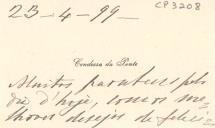 23-4-99-
CP3208
Condessa da Ponte
Muitos parabens pelo
dia d'hoje, com os me-
lhores desejos de felici-